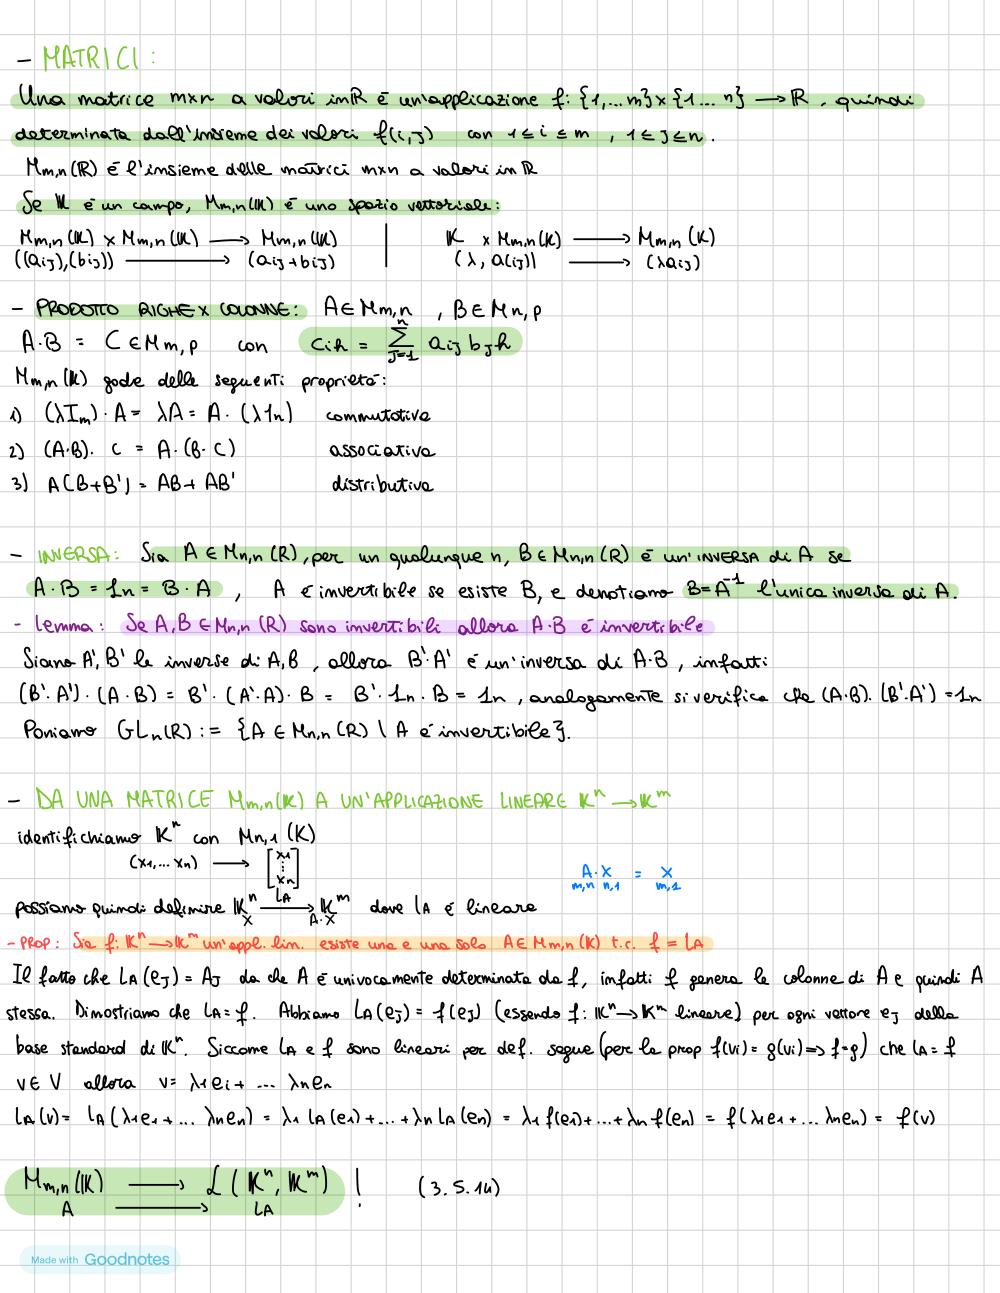 - MATRICI:
Una matrice m×n a valori in ℝ è un'applicazione f: {1,... m}×{1... n} ⟶ ℝ, quindi
determinata dall'insieme dei valori f(i,j) con 1≤i≤m , 1≤j≤n.
Mm,n(ℝ) è l'insieme delle matrici m×n a valori in ℝ
Se 𝕂 è un campo, Mm,n(𝕂) è uno spazio vettoriale:
Mm,n(𝕂) × Mm,n(𝕂) ⟶ Mm,n(𝕂) | 𝕂 × Mm,n(𝕂) ⟶ Mm,n(𝕂)
((aij),(bij)) ⟶ (aij+bij) | (λ, a(ij)) ⟶ (λaij)
- PRODOTTO RIGHE × COLONNE: A∈Mm,n , B∈Mn,p
A·B = C∈Mm,p con cih = Σ_{j=1}^{n} aij bjh
Mm,n(𝕂) gode delle seguenti proprietà:
1) (λIm)·A = λA = A·(λ1n) commutativa
2) (A·B)·C = A·(B·C) associativa
3) A(B+B') = AB+AB' distributiva
- INVERSA: Sia A∈Mn,n(R), per un qualunque n, B∈Mn,n(R) è un'INVERSA di A se
A·B = 1n = B·A , A è invertibile se esiste B, e denotiamo B=A⁻¹ l'unica inversa di A.
- Lemma: Se A,B∈Mn,n(R) sono invertibili allora A·B è invertibile
Siano A', B' le inverse di A,B , allora B'·A' è un'inversa di A·B , infatti
(B'·A')·(A·B) = B'·(A'·A)·B = B'·1n·B = 1n , analogamente si verifica che (A·B)·(B'·A') = 1n
Poniamo GLn(R) := {A∈Mn,n(R) \ A è invertibile}.
- DA UNA MATRICE Mm,n(𝕂) A UN'APPLICAZIONE LINEARE 𝕂ⁿ ⟶ 𝕂ᵐ
identifichiamo 𝕂ⁿ con Mn,1(K)
(x1,... xn) ⟶ [x1 ⋮ xn]
A·X = X
m,n n,1 m,1
possiamo quindi definire 𝕂ⁿ ⟶ 𝕂ᵐ dove LA è lineare
LA
X A·X
- PROP: Sia f: 𝕂ⁿ⟶𝕂ᵐ un'appl. lin. esiste una e una sola A∈Mm,n(𝕂) t.c. f = LA
Il fatto che LA(eJ) = AJ da che A è univocamente determinata da f, infatti f genera le colonne di A e quindi A
stessa. Dimostriamo che LA=f. Abbiamo LA(eJ) = f(eJ) (essendo f: 𝕂ⁿ→𝕂ᵐ lineare) per ogni vettore eJ della
base standard di 𝕂ⁿ. Siccome LA e f sono lineari per def. segue (per la prop f(vi) = g(vi) ⇒ f=g) che LA = f
v∈V allora v= λ1ei+ ... λnen
LA(v) = LA(λ1e1+... λnen) = λ1 LA(e1)+...+λn LA(en) = λ1 f(e1)+...+λn f(en) = f(λ1e1+... λnen) = f(v)
Mm,n(𝕂) ⟶ ℒ(𝕂ⁿ, 𝕂ᵐ) ! (3.5.14)
A ⟶ LA
Made with Goodnotes